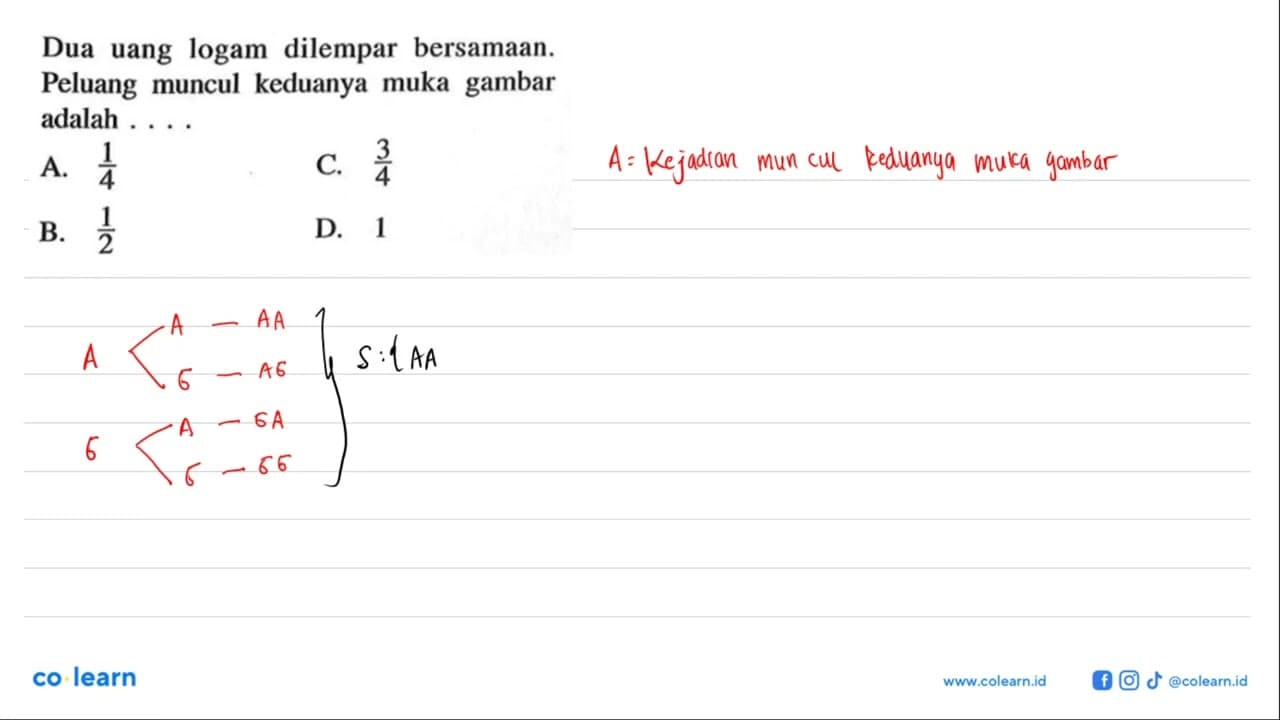 Dua uang logam dilempar bersamaan.
Peluang muncul keduanya muka gambar
adalah . . . .
A. 1/4
C. 3/4
B. 1/2
D. 1
A = Kejadian muncul keduanya muka gambar
A
A — AA
G — AG
G
A — GA
G — GG
S : { AA
co learn
www.colearn.id
@colearn.id